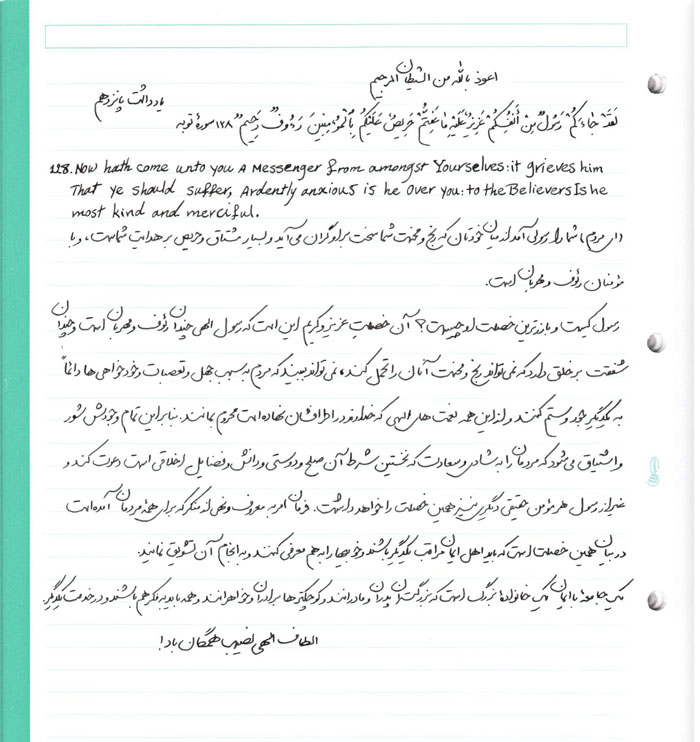 اعوذ بالله من الشیطان الرجیم
یادداشت پانزدهم
لَقَدْ جَاءَكُمْ رَسُولٌ مِنْ أَنْفُسِكُمْ عَزِيزٌ عَلَيْهِ مَا عَنِتُّمْ حَرِيصٌ عَلَيْكُمْ بِالْمُؤْمِنِينَ رَءُوفٌ رَحِيمٌ ۱۲۸ سورۀ توبه
128. Now hath come unto you A Messenger from amongst Yourselves: it grieves him
That ye should suffer, Ardently anxious is he Over You: to the Believers Is he
most kind and merciful.
(ای مردم) شما را رسولی آمد از میان خودتان که رنج و محنت شما سخت بر او گران می‌آید و بسیار مشتاق و حریص بر هدایت شماست، و با
مؤمنان رئوف و مهربان است.
رسول کیست و بارزترین خصلت او چیست؟ آن خصلت عزیز و کریم این است که رسول الهی چندان رئوف و مهربان است و چندان
شفقت بر خلق دارد که نمی‌تواند رنج و محنت آنان را تحمل کند، نمی‌تواند ببیند که مردم به سبب جهل و تعصبات و خودخواهی‌ها دائماً
به یکدیگر جور و ستم کنند و از این همه نعمت‌های الهی که خداوند در اطرافشان نهاده است محروم بمانند. بنابراین تمام وجودش شور
و اشتیاق می‌شود که مردمان را به شادی و سعادت که نخستین شرط آن صلح و دوستی و دانش و فضایل اخلاقی است دعوت کند و
غیر از رسول هر مؤمن حقیقی دیگری نیز همین خصلت را خواهد داشت. فرمان امر به معروف و نهی از منکر که برای همۀ مردمان آمده است
در بیان همین خصلت است که باید اهل ایمان مراقب یکدیگر باشند و خوبیها را به هم معرفی کنند و به انجام آن تشویق نمایند.
یک جامعۀ با ایمان یک خانوادۀ بزرگ است که بزرگترها پدران و مادرانند و کوچکترها برادران و خواهرانند و همه باید به فکر هم باشند و در خدمت یکدیگر.
الطاف الهی نصیب همگان باد!